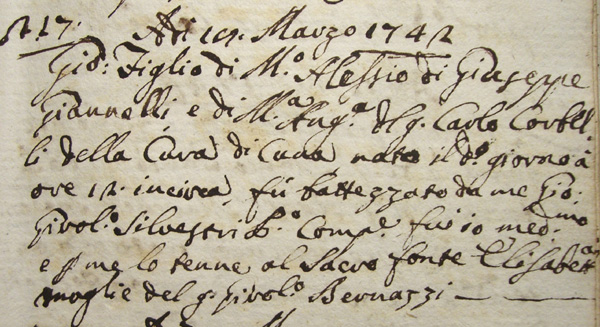 17. Adi 19. Marzo 1742
Gio: Figlio di M.º Alessio di Giuseppe
Giannelli e di M.ª Ang.ª del q. Carlo Corbel-
li della Cura di nato il dº giorno à
ore 12. incirca, fù battezzato da me Gio:
Girol.º Silvestri Comp.e fui io med.mo
e p me lo tenne al Sacro fonte Elisabetta
moglie del q. Girol.º Bernazzi